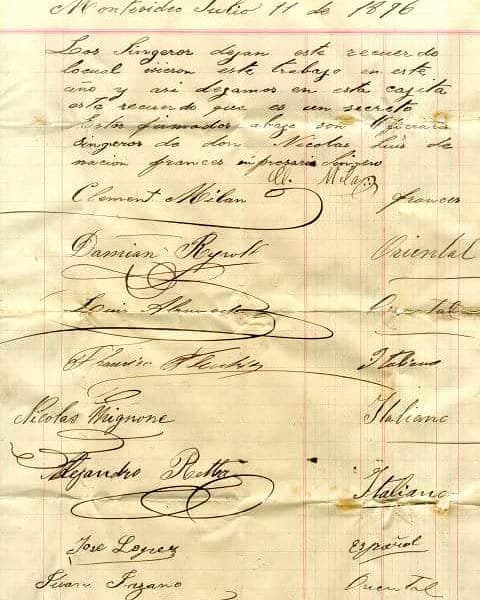 Montevideo Julio 11 de 1896
Los Singeros dejan este recuerdo
locual isieron este trabajo en este
año y asi dejamos en esta cajita
este recuerdo que es un secreto
Estos firmados abajo son
singeros de don Nicolas Luis de
nacion frances impresario Singero
Cl. Milan
Clement Milan frances
Damian Oriental
Luis Oriental
Italiano
Nicolas Mignone Italiano
Alejandro Italiano
Jose Lopez Español
Oriental